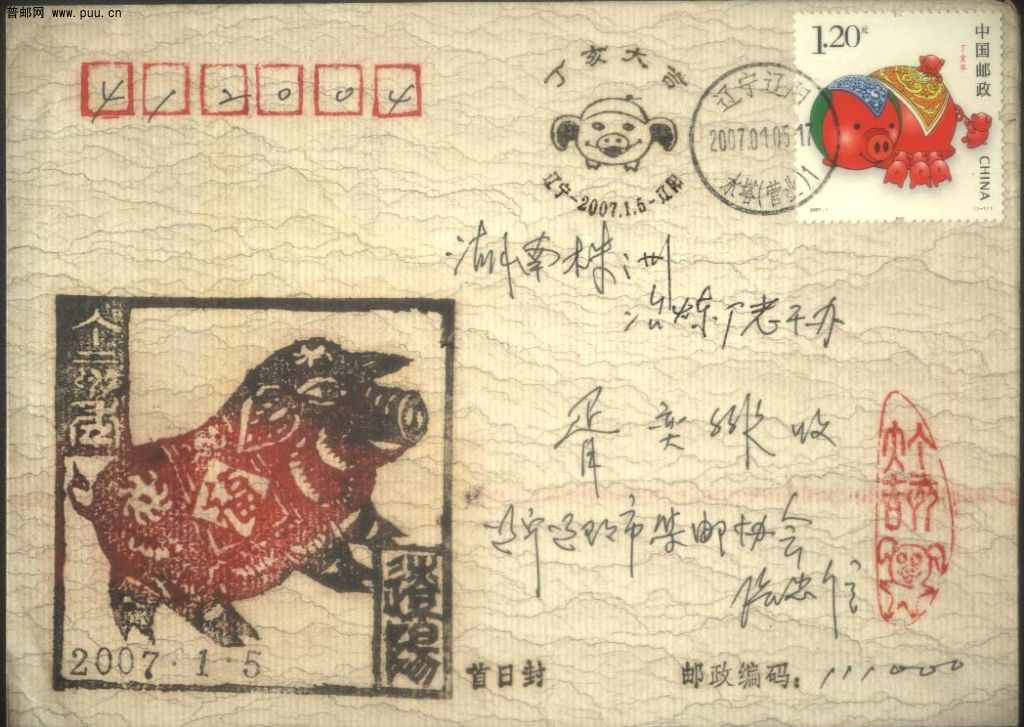 普邮网 www.puu.cn
412004
丁亥大
辽宁-2007.1.5-辽阳
辽宁辽阳
2007.01.05.17
水塔(营业)1
1.20元
丁亥年
中国邮政
CHINA
湖南株洲
冶炼厂老干办
收
辽宁辽阳市集邮协会
福
遼陽
2007·1·5
首日封
邮政编码:111000